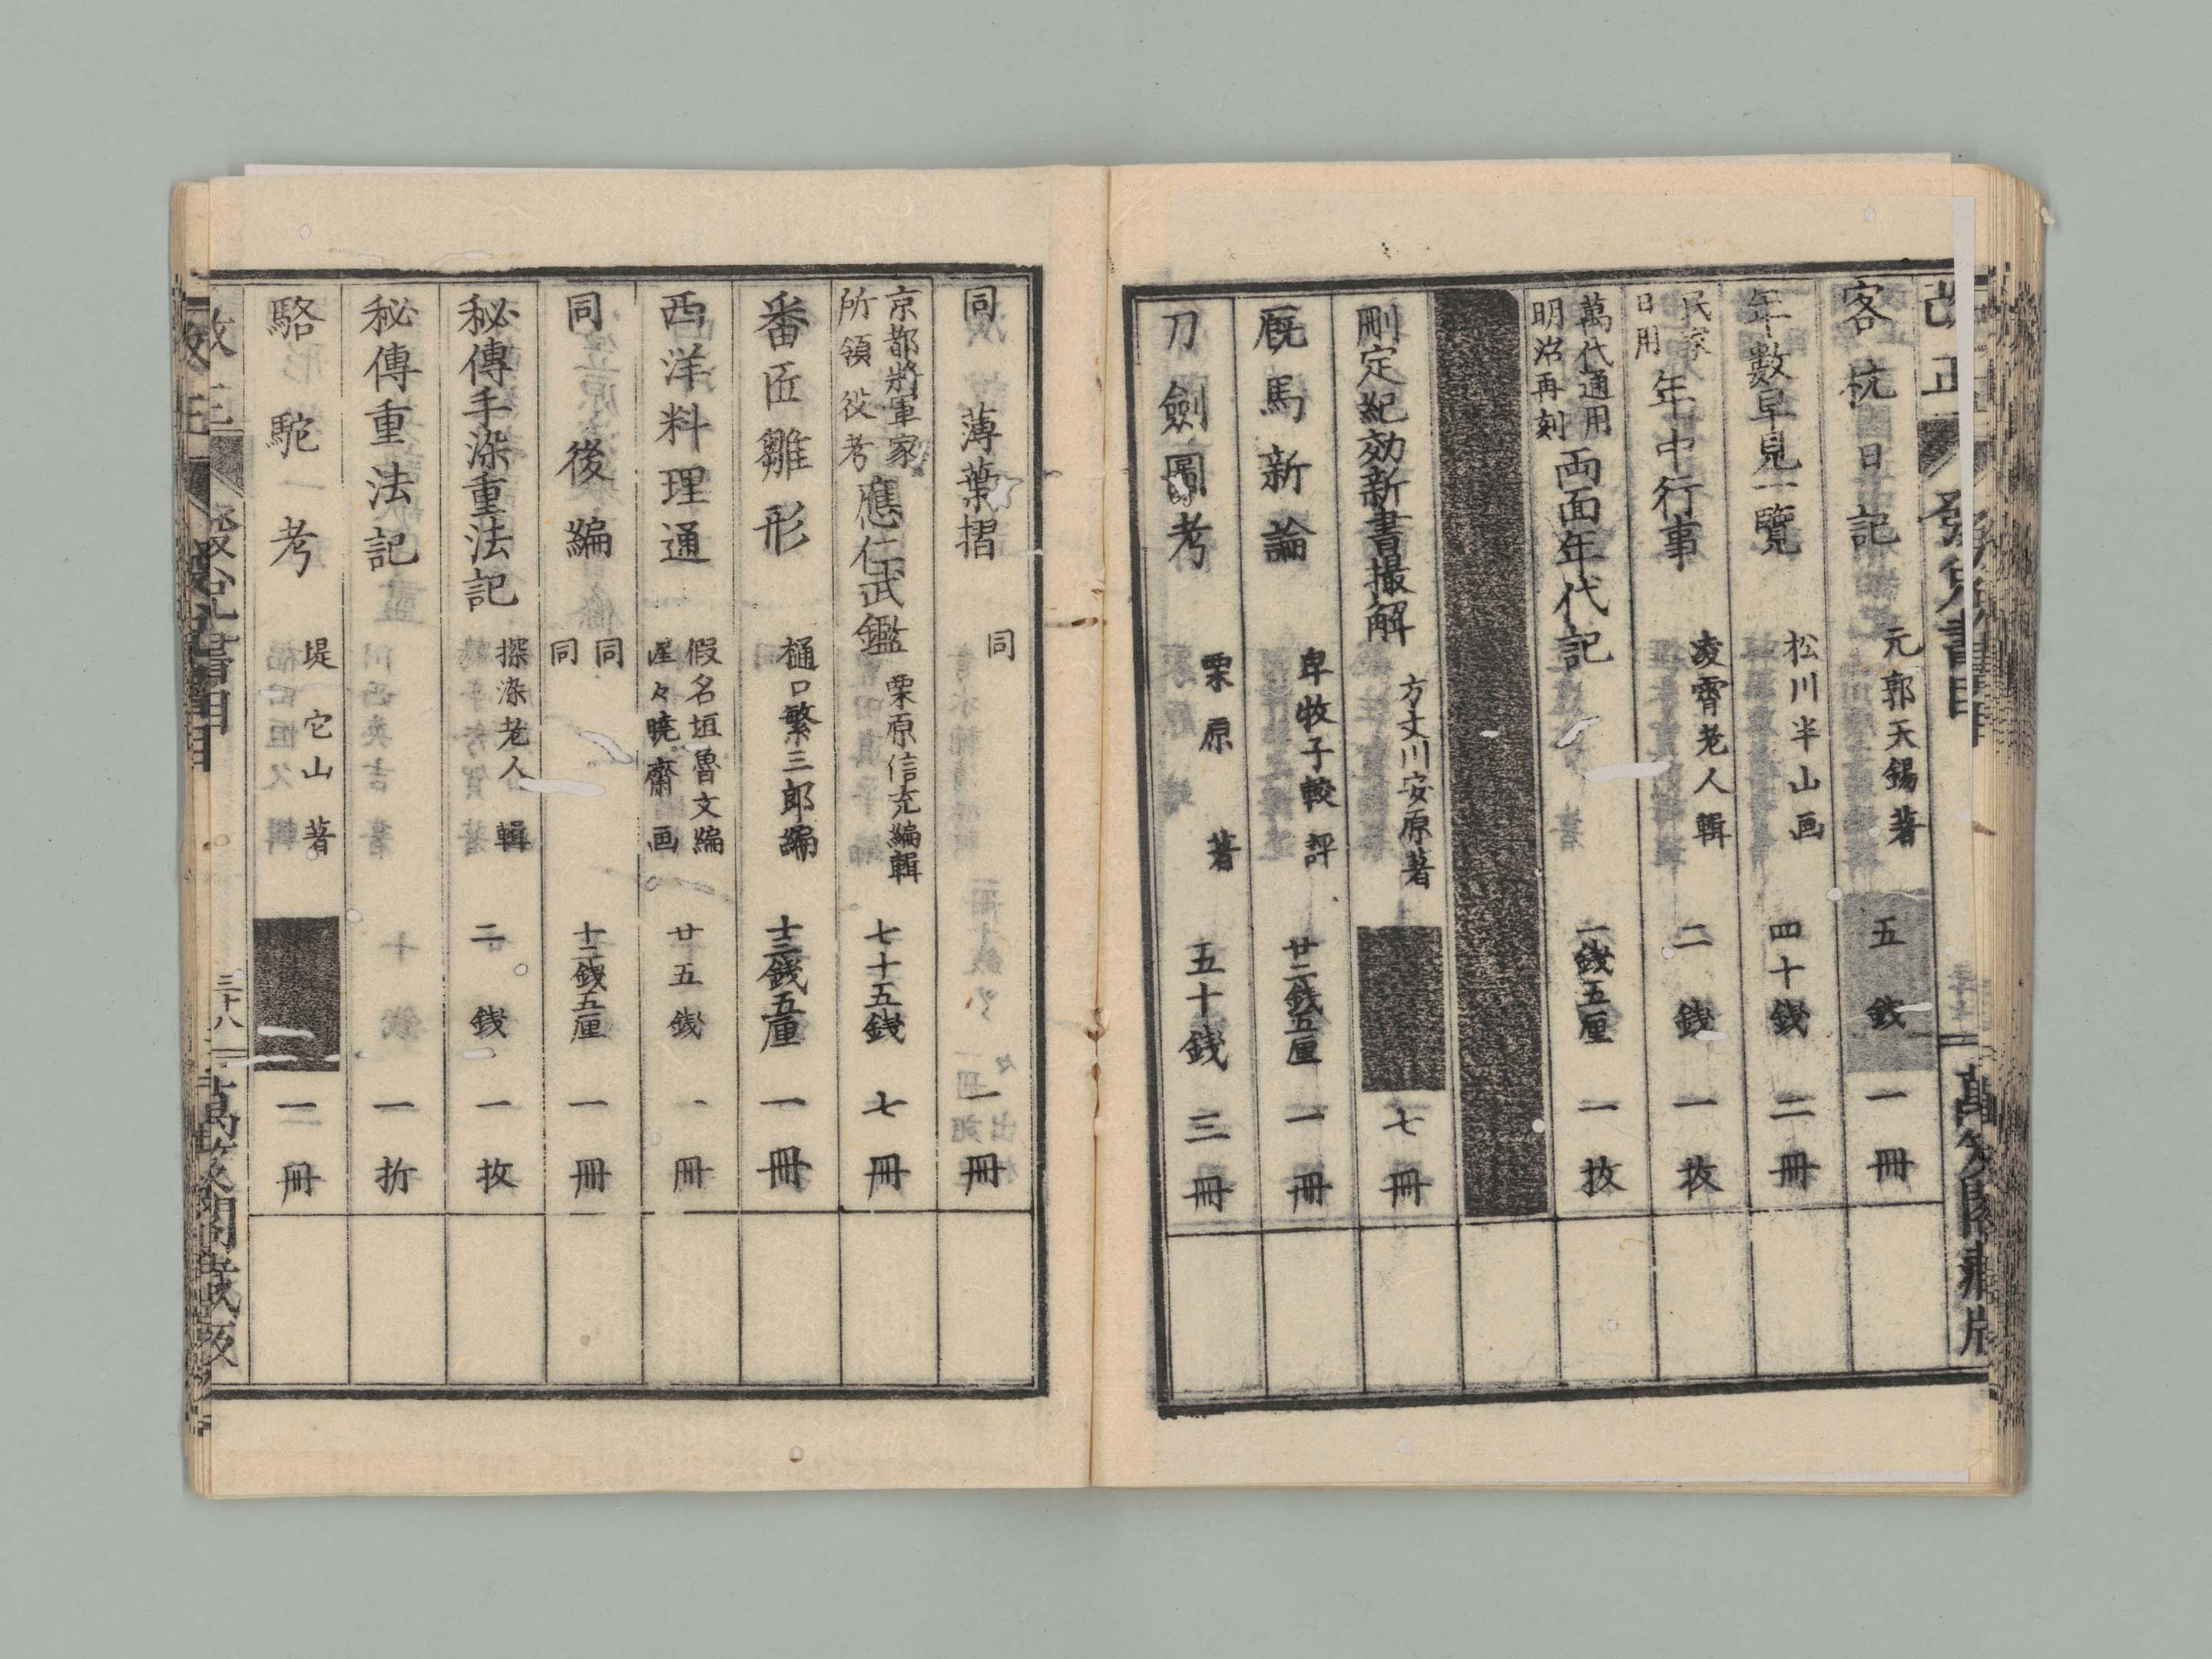 改正 発兌書目 萬笈閣藏版
客杭日記 元郭天錫著 五銭 一冊
年數早見一覽 松川半山画 四十銭 二冊
民家日用 年中行事 凌霄老人輯 二銭 一枚
萬代通用明治再刻 両面年代記 一銭五厘 一枚
刪定紀効新書撮解 方丈川安原著 七冊
厩馬新論 卑牧子較評 廿二銭五厘 一冊
刀劍圖考 栗原著 五十銭 三冊
同 薄葉摺 同 一冊
京都將軍家所領役考 應仁武鑑 栗原信充編輯 七十五銭 七冊
番匠雛形 樋口繁三郎編 十三銭五厘 一冊
西洋料理通 假名垣魯文編 屋々暁齋画 廿五銭 一冊
同後編 同 同 十二銭五厘 一冊
秘傳手染重法記 探染老人輯 二銭 一枚
秘傳重法記 一折
駱駝考 堤它山著 二冊
三十八 萬笈閣藏版